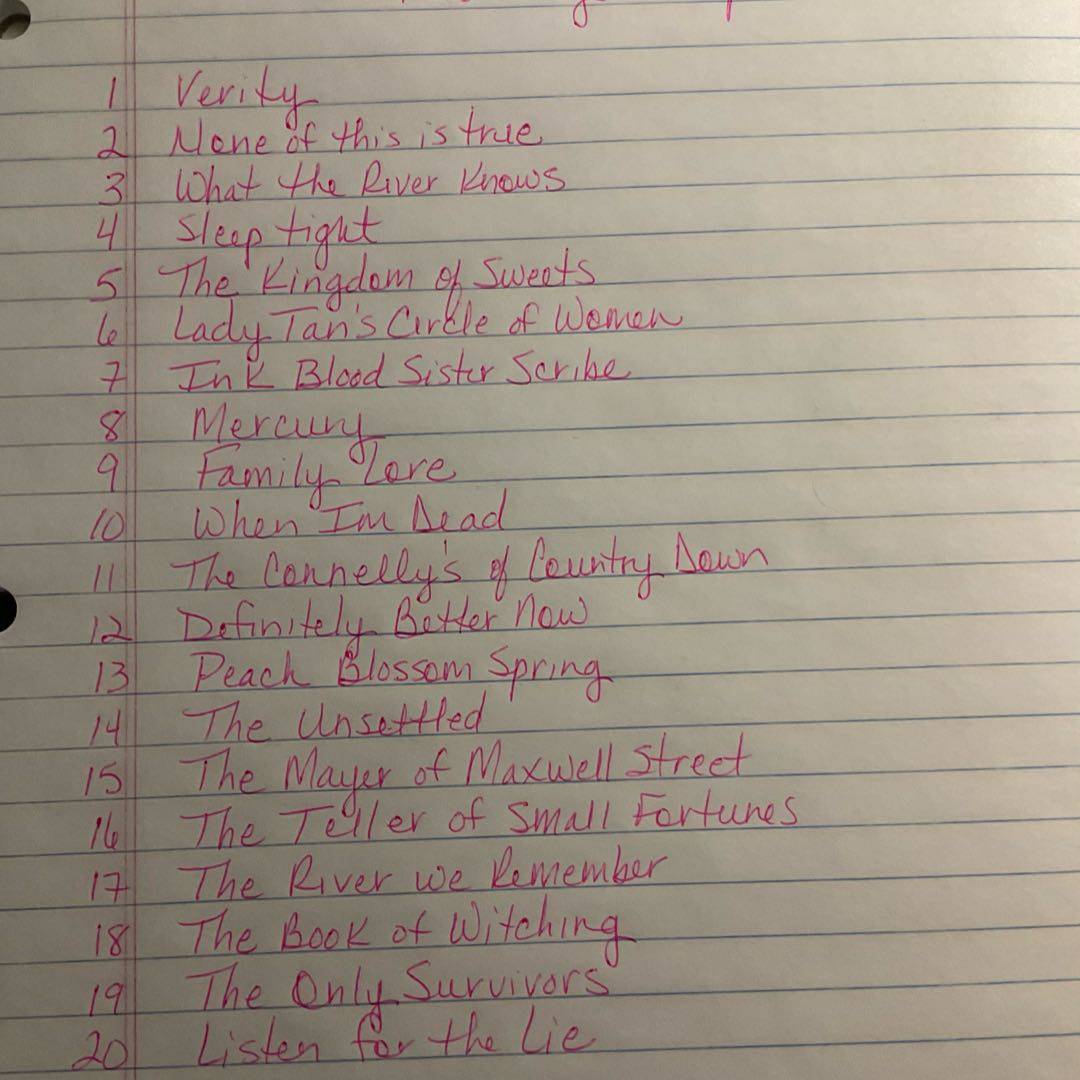 1 Verity
2 None of this is true
3 What the River Knows
4 Sleep tight
5 The Kingdom of Sweets
6 Lady Tan's Circle of Women
7 Ink Blood Sister Scribe
8 Mercury
9 Family Lore
10 When Im Dead
11 The Connelly's of Country Down
12 Definitely Better Now
13 Peach Blossom Spring
14 The Unsettled
15 The Mayer of Maxwell Street
16 The Teller of Small Fortunes
17 The River we Remember
18 The Book of Witching
19 The Only Survivors
20 Listen for the Lie